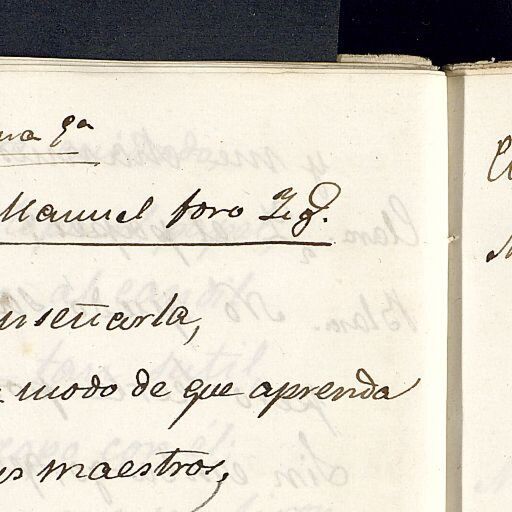 na 9ª
Manuel foro Izq.
enseñarla,
modo de que aprenda
maestros,